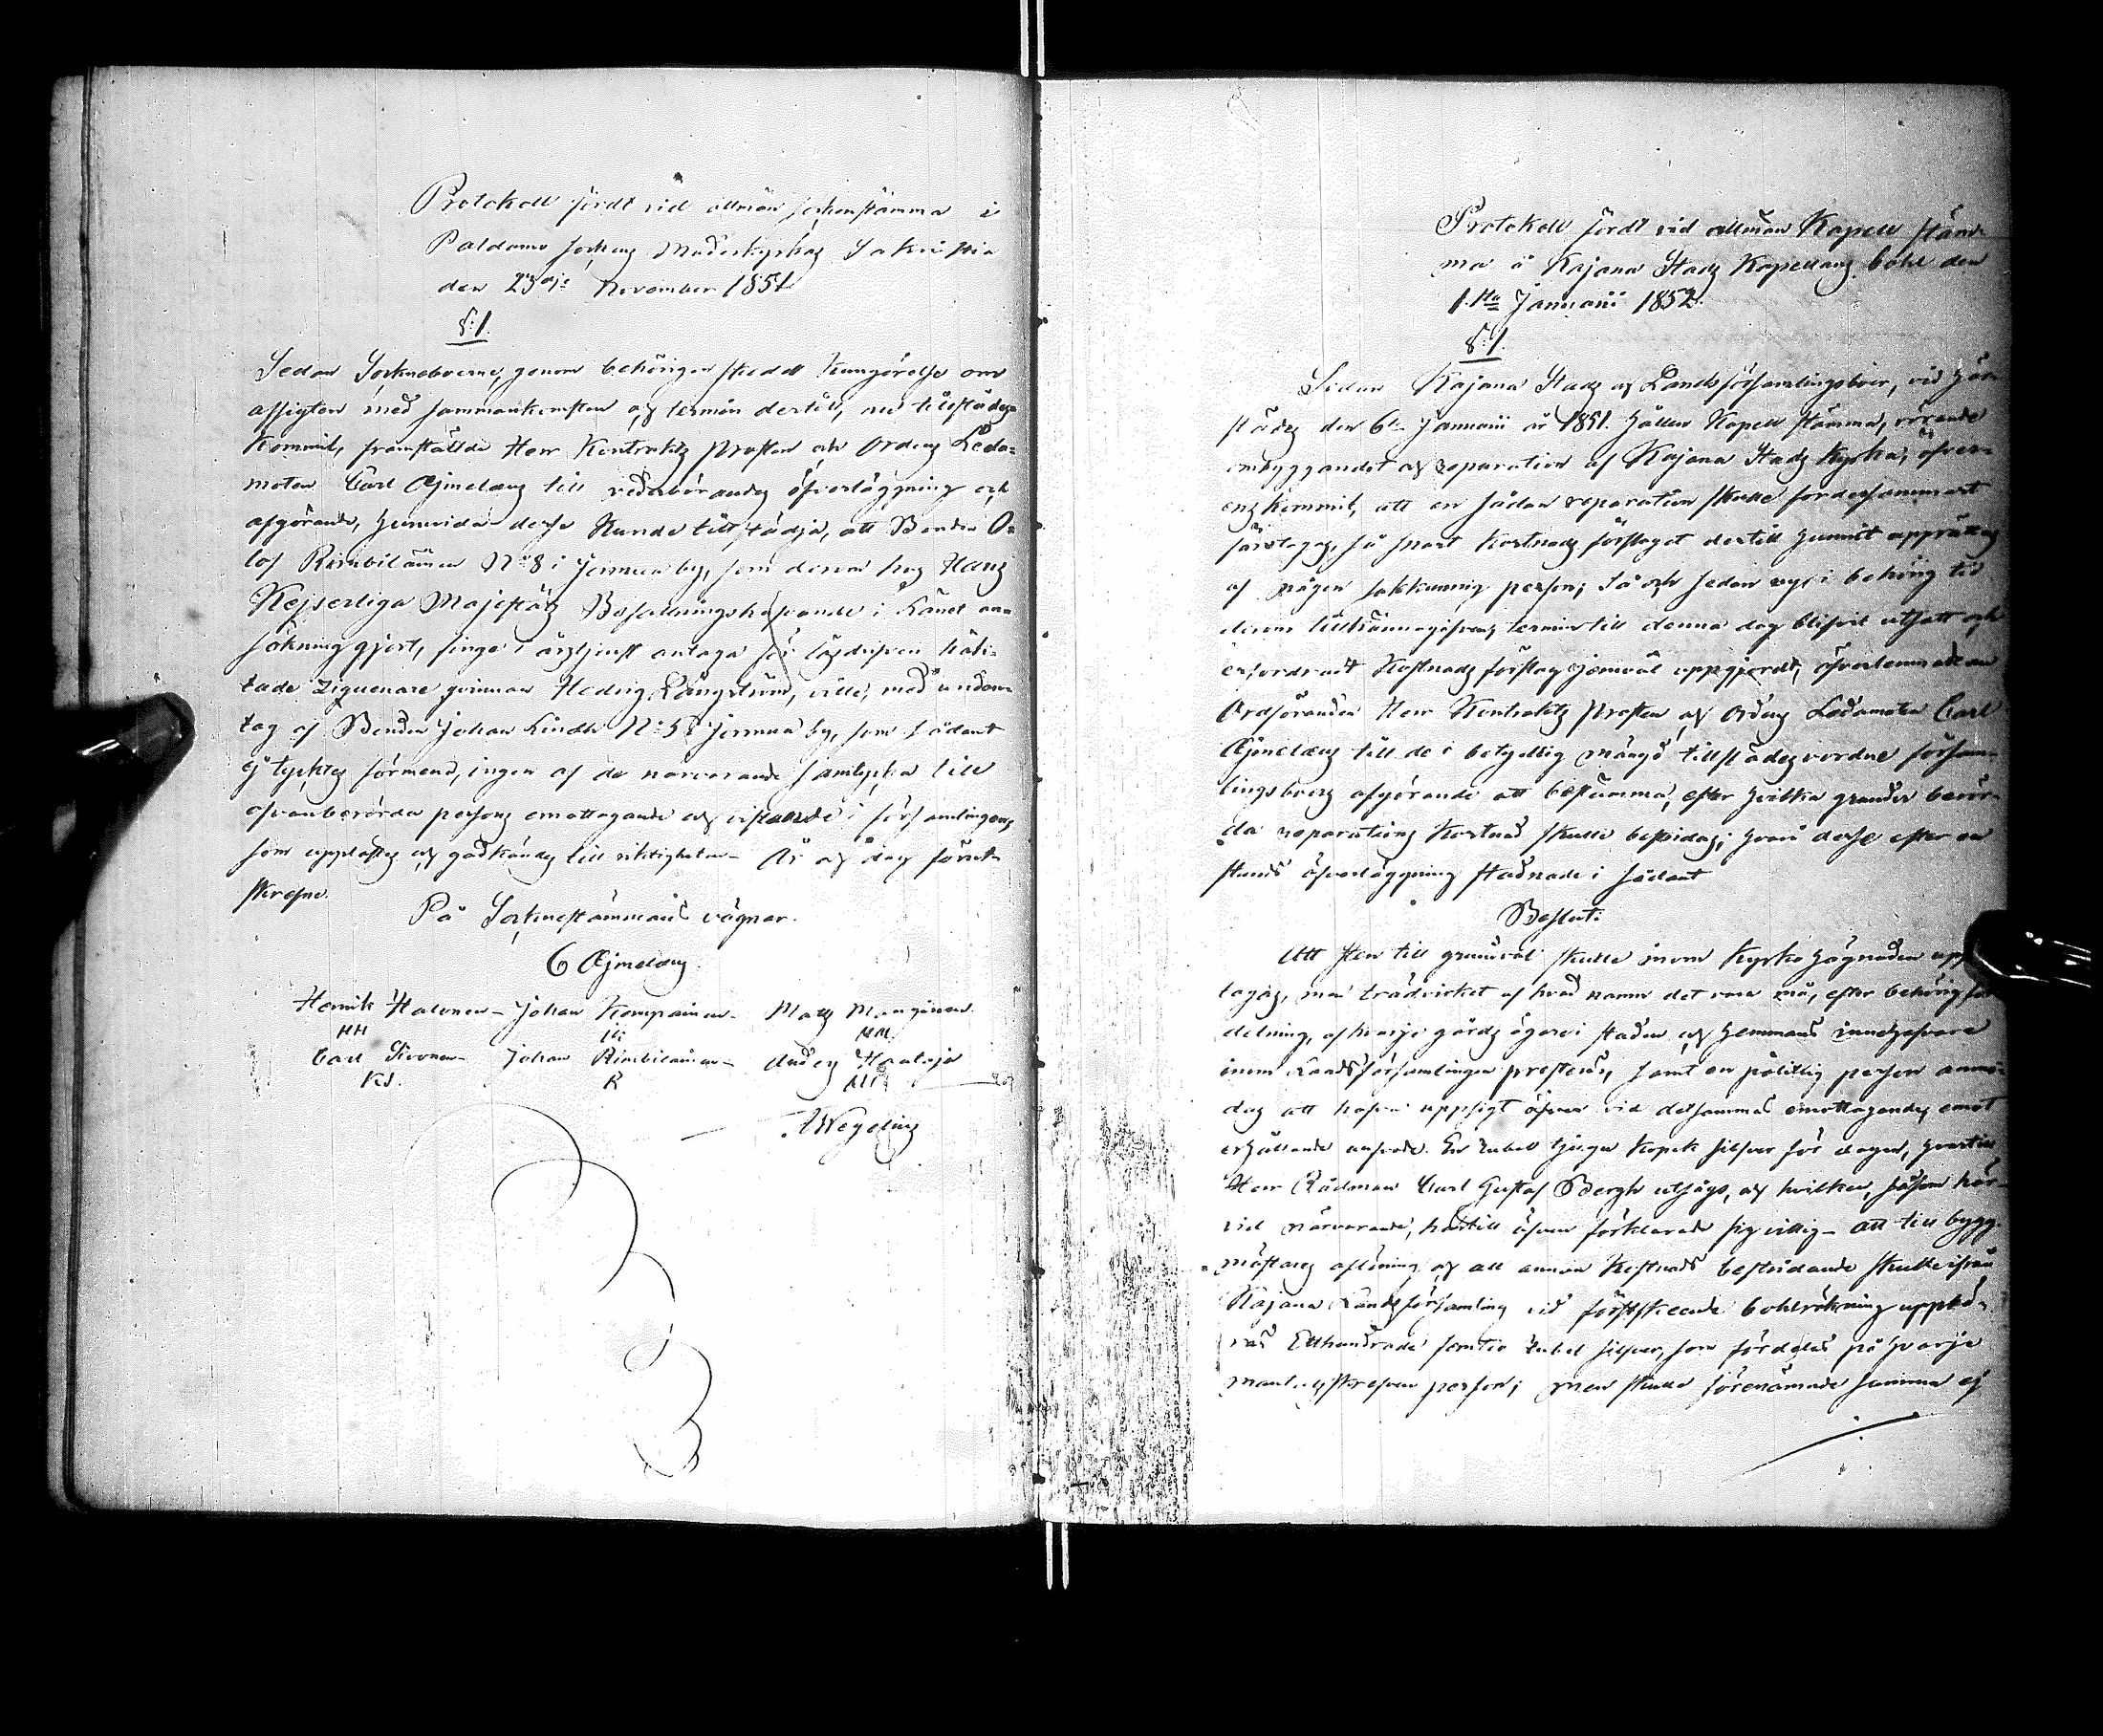 Protokoll fördt vid allmän sockenstämma i
Paldamo sockens Moderkyrkas Sakristia
den 23dje November 1851
§:1.
Sedan Sockneboerne, genom behörigen skedd kungörelse om
afsigten med sammankomsten och termin dertill, nu tillstädes
kommit, framställde Herr Kontrakts Prosten och Ordens Leda-
moten Carl Æjmelæus till vederbörandes öfverläggning och
afgörande, huruvida desse kunde tillstädja, att Bonden O-
lof Rimbiläinen N:o 8 i Jormua by, som derom hos Hans
Kejserliga Majestäts Befallningshafvande i Länet an-
sökning gjort, finge i årstjenst antaga för lösdrifveri häk-
tade Ziguenare qvinnan Hedvig Långström, ville, med undan-
tag af Bonden Johan Lindh N:o 5 i Jormua by, som sådant
ej tycktes förmena, ingen af de närvarande samtycka till
ofvanberörda persons emottagande och vistande i församlingen;
som upplästes och godkändes till riktigheten. År och dag förut-
skrefne.
På Sockenestämmans vägnar.
C Æjmelæus.
Henrik Halonen – Johan Komppainen – Mats Manginen.
HH IK MM
Carl Sirvonen – Johan Rimbiläinen – Anders Hautaja
KS. R AH
A Wegelius
Protokoll fördt vid allmän Kapell stäm-
ma å Kajana Stads Kapellans bohl den
1.sta Januarii 1852.
§:1.
Sedan Kajana Stads och Landsförsamlingsboer, vid här-
städes den 6te Januarii år 1851. hållen Kapell stämma, rörande
ombyggandet och reparation af Kajana Stads Kyrka, öfver-
enskommit, att en sådan reparation skulle fordersammast
företagas, så snart kostnads förslaget dertill hunnit upprättas
af någon sakkunnig person; Så och sedan nu i behörig tid
derom tillkännagifven termin till denna dag blifvit utsatt och
erfordradt kostnads förslag jemväl uppgjordt, öfverlemnade
Ordföranden Herr Kontrakts Prosten och Ordens Ledamoten Carl
Æjmelæus till de i betydlig mängd tillstädesvordne försam-
lingsboers afgörande att bestämma, efter hvilka grunder berör-
da reparations kostnad skulle bestridas; hvarå desse efter en
stunds öfverläggning stadnade i sådant
Beslut:
Att sten till grundval skulle inom Kyrko hägnaden upp
tagas, men trädvirket af hvad namn det vara må, efter behörig för-
delning, af hvarje gårds ägare i staden och hemmans innehafvare
inom Landsförsamlingen presteras, samt en pålitlig person anmo-
das att hafva uppsigt öfver vid detsammas emottagande, emot
erhållande arfvode En rubel tjugu kopek silfver för dagen, hvartill
Herr Rådman Carl Gustaf Bergh utsågs, och hvilken, såsom här-
vid närvarande, härtill äfven förklarade sig villig – att till bygg-
mästarens aflöning och all annan kostnads bestridande skulle ifrån
Kajana Landsförsamling vid förstskeende bohlräkning uppbä-
ras Etthundrade femtio rubel silfver, som fördelas på hvarje
mantalsskrefven person; men skulle förenämnde summa ej